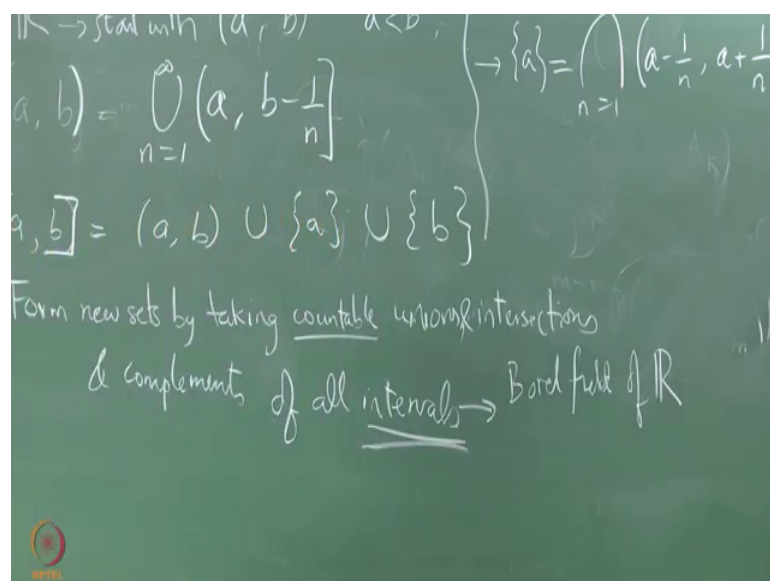 ℝ → start with (a, b) a < b,
a, b) = ⋃_{n=1}^{∞} (a, b - 1/n]
a, b] = (a, b) ∪ {a} ∪ {b}
→ {a} = ⋂_{n≥1} (a - 1/n, a + 1/n
Form new sets by taking countable unions & intersections
& complements of all intervals → Borel field of ℝ
NPTEL